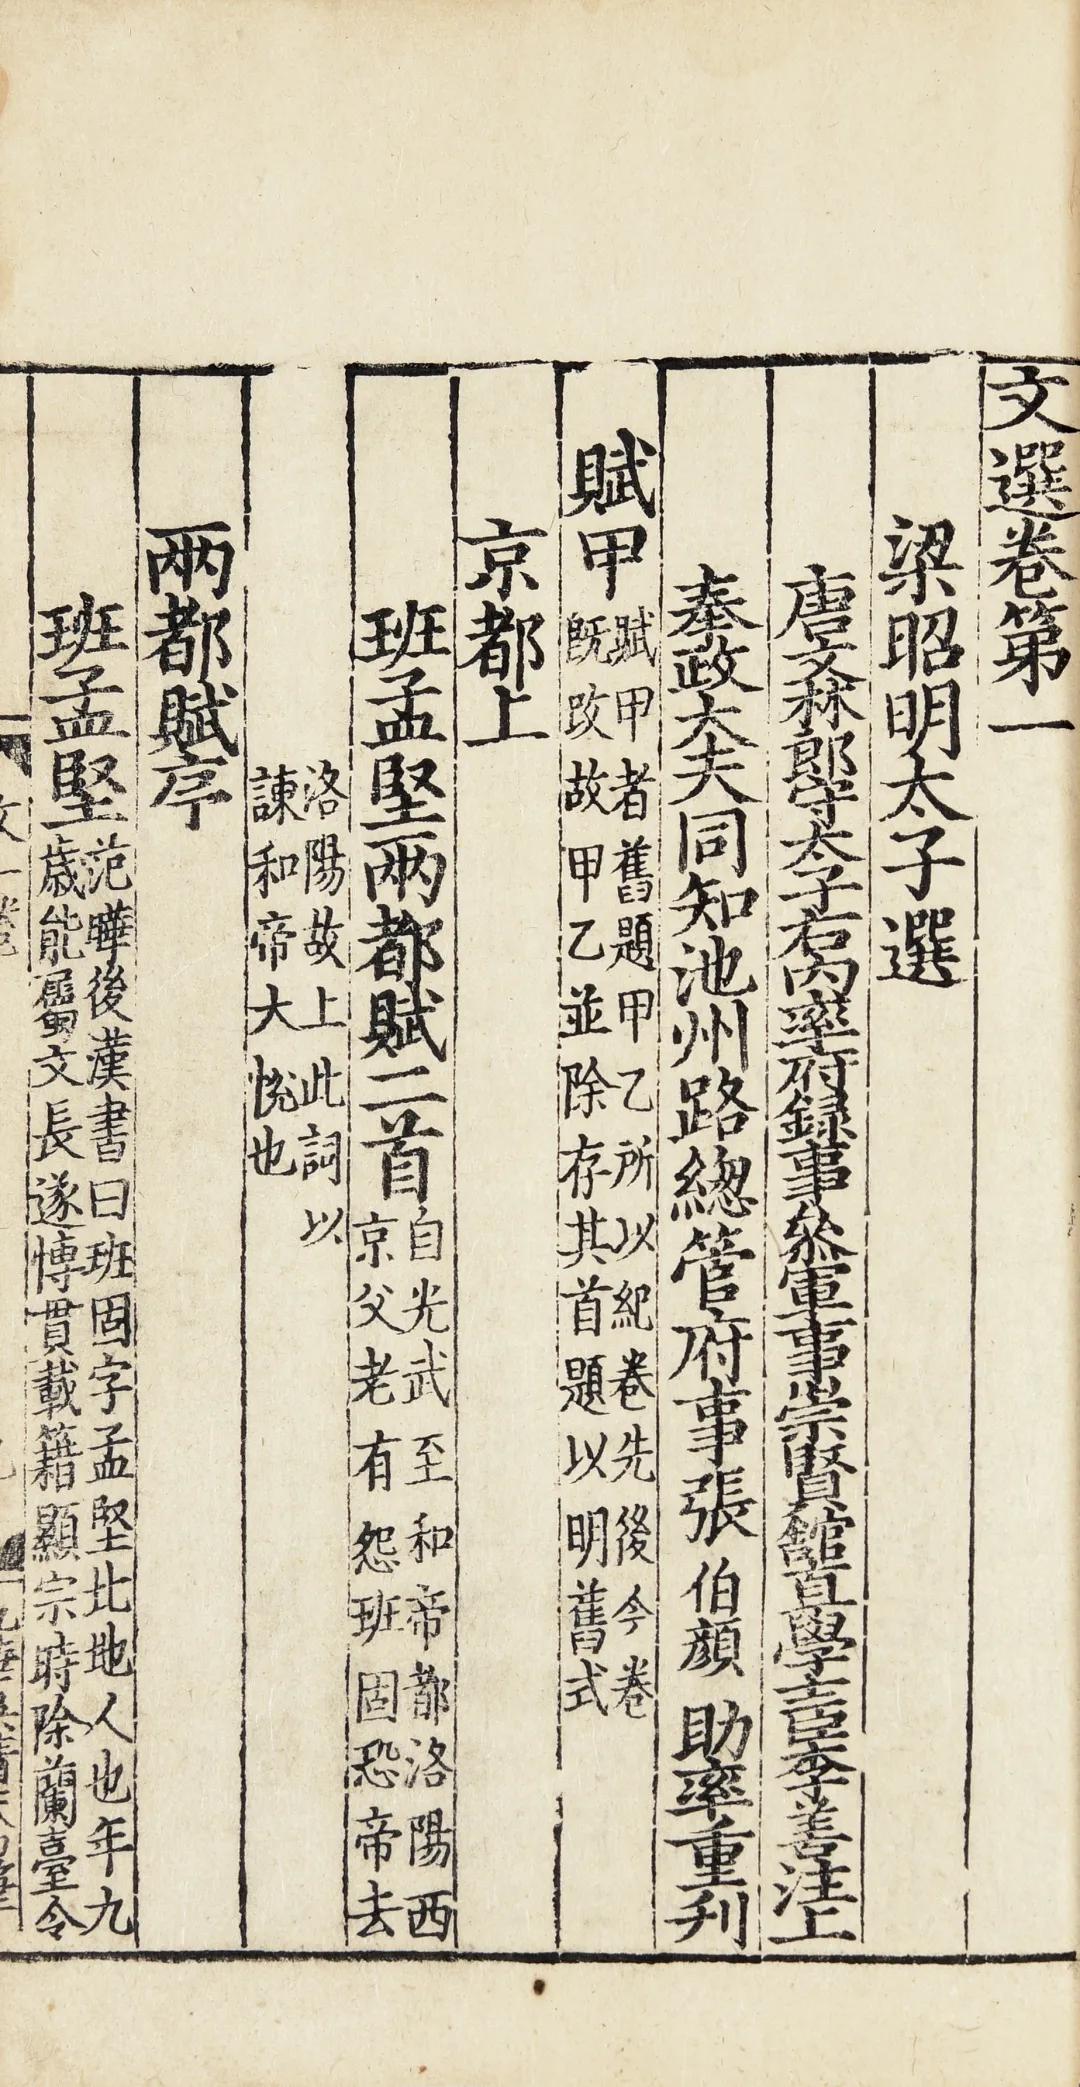 文選卷第一
梁昭明太子選
唐文林郎守太子右内率府録事叅軍事崇賢館直學士臣李善注上
奉政大夫同知池州路緫管府事張伯顔助率重刊
賦甲賦甲者舊題甲乙所以紀卷先後今卷
既改故甲乙並除存其首題以明舊式
京都上
班孟堅兩都賦二首自光武至和帝都洛陽西
京父老有怨班固恐帝去
洛陽故上此詞以
諌和帝大恱也
兩都賦序
班孟堅范曄後漢書曰班固字孟堅北地人也年九
歲能屬文長遂博貫載籍顯宗時除蘭臺令